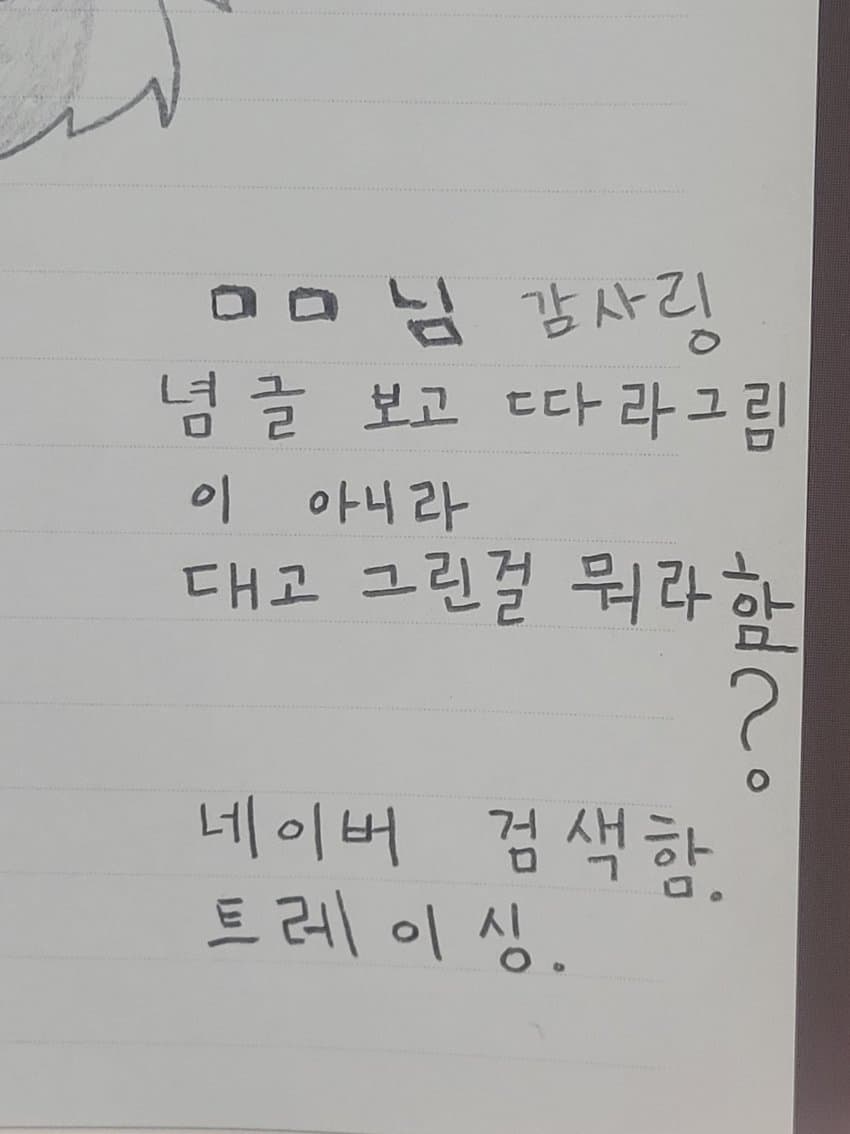 ㅁㅁ님 감사링
념글 보고 따라그림
이 아니라
대고 그린걸 뭐라함
?
네이버 검색함.
트레이싱.